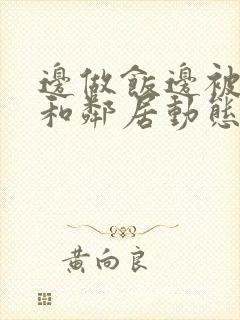 邊做飯邊被
和鄰居動態
黃向良